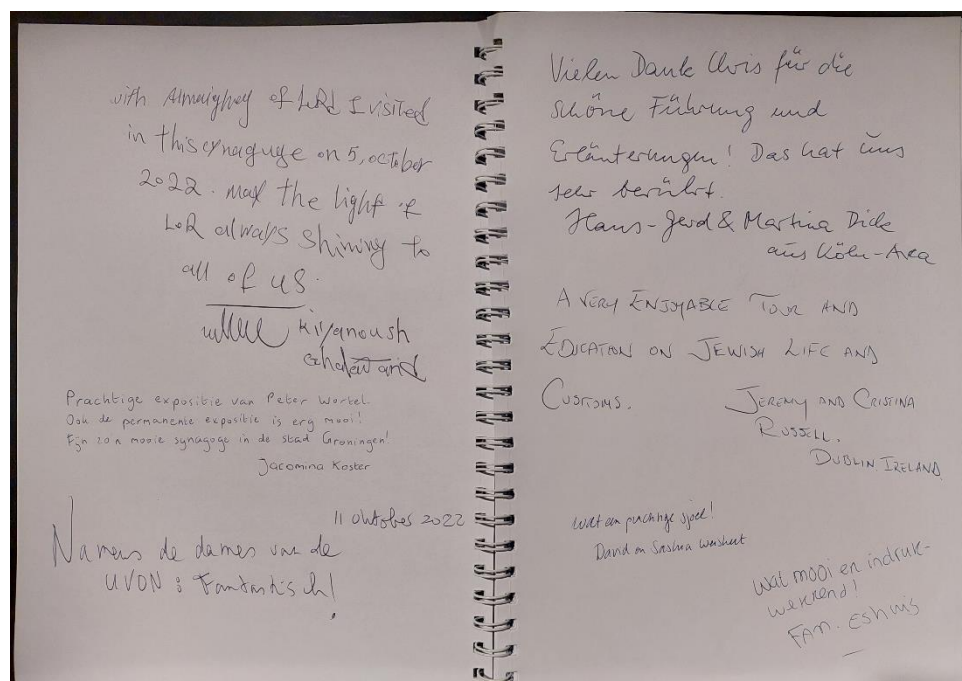 with Almaighey of LoRd I visited
in this synaguge on 5, october
2022. max the light of
LoR always shining to
all of us.
kiyanoush
Prachtige expositie van Peter Wortel.
Ook de permanente expositie is erg mooi!
Fijn zo'n mooie synagoge in de stad Groningen!
Jacomina Koster
11 oktober 2022
Namens de dames van de
UVON : Fantastisch!
Vielen Dank Chris für die
schöne Führung und
Erläuterungen! Das hat uns
sehr berührt.
Hans-Gerd & Martina Dick
aus Köln-Area
A VERY ENJOYABLE TOUR AND
EDICATION ON JEWISH LIFE AND
CUSTOMS.
JEREMY AND CRISTINA
RUSSELL.
DUBLIN. IRELAND
Wat een prachtige sjoel!
David en Saskia
Wat mooi en indruk-
wekkend!
FAM. ESHUIS